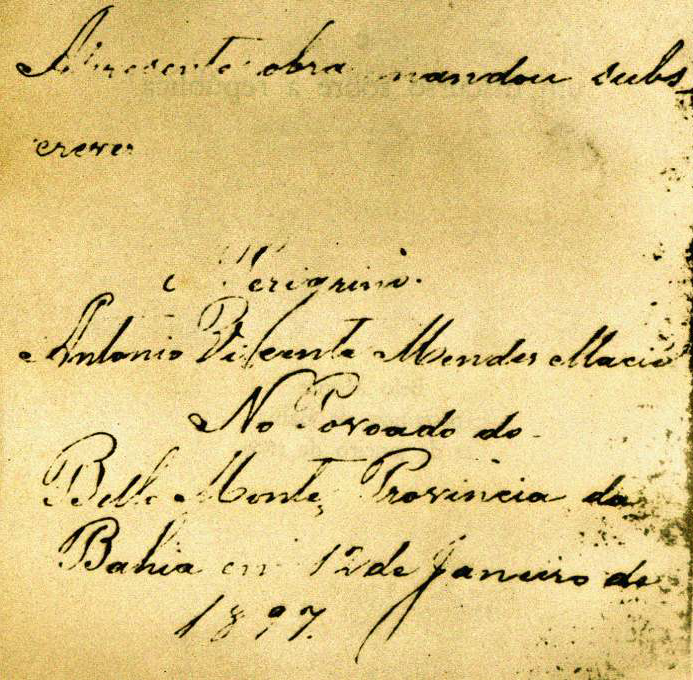 A presente obra mandou subs
crever
o Peregrino
Antonio Vicente Mendes Maciel
No Povoado do
Bello Monte, Provincia da
Bahia em 12 de Janeiro de
1897.